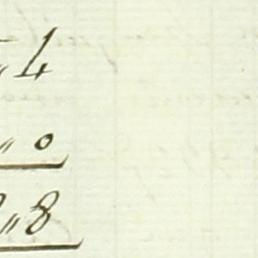 „ 4
„ 0
„ 8